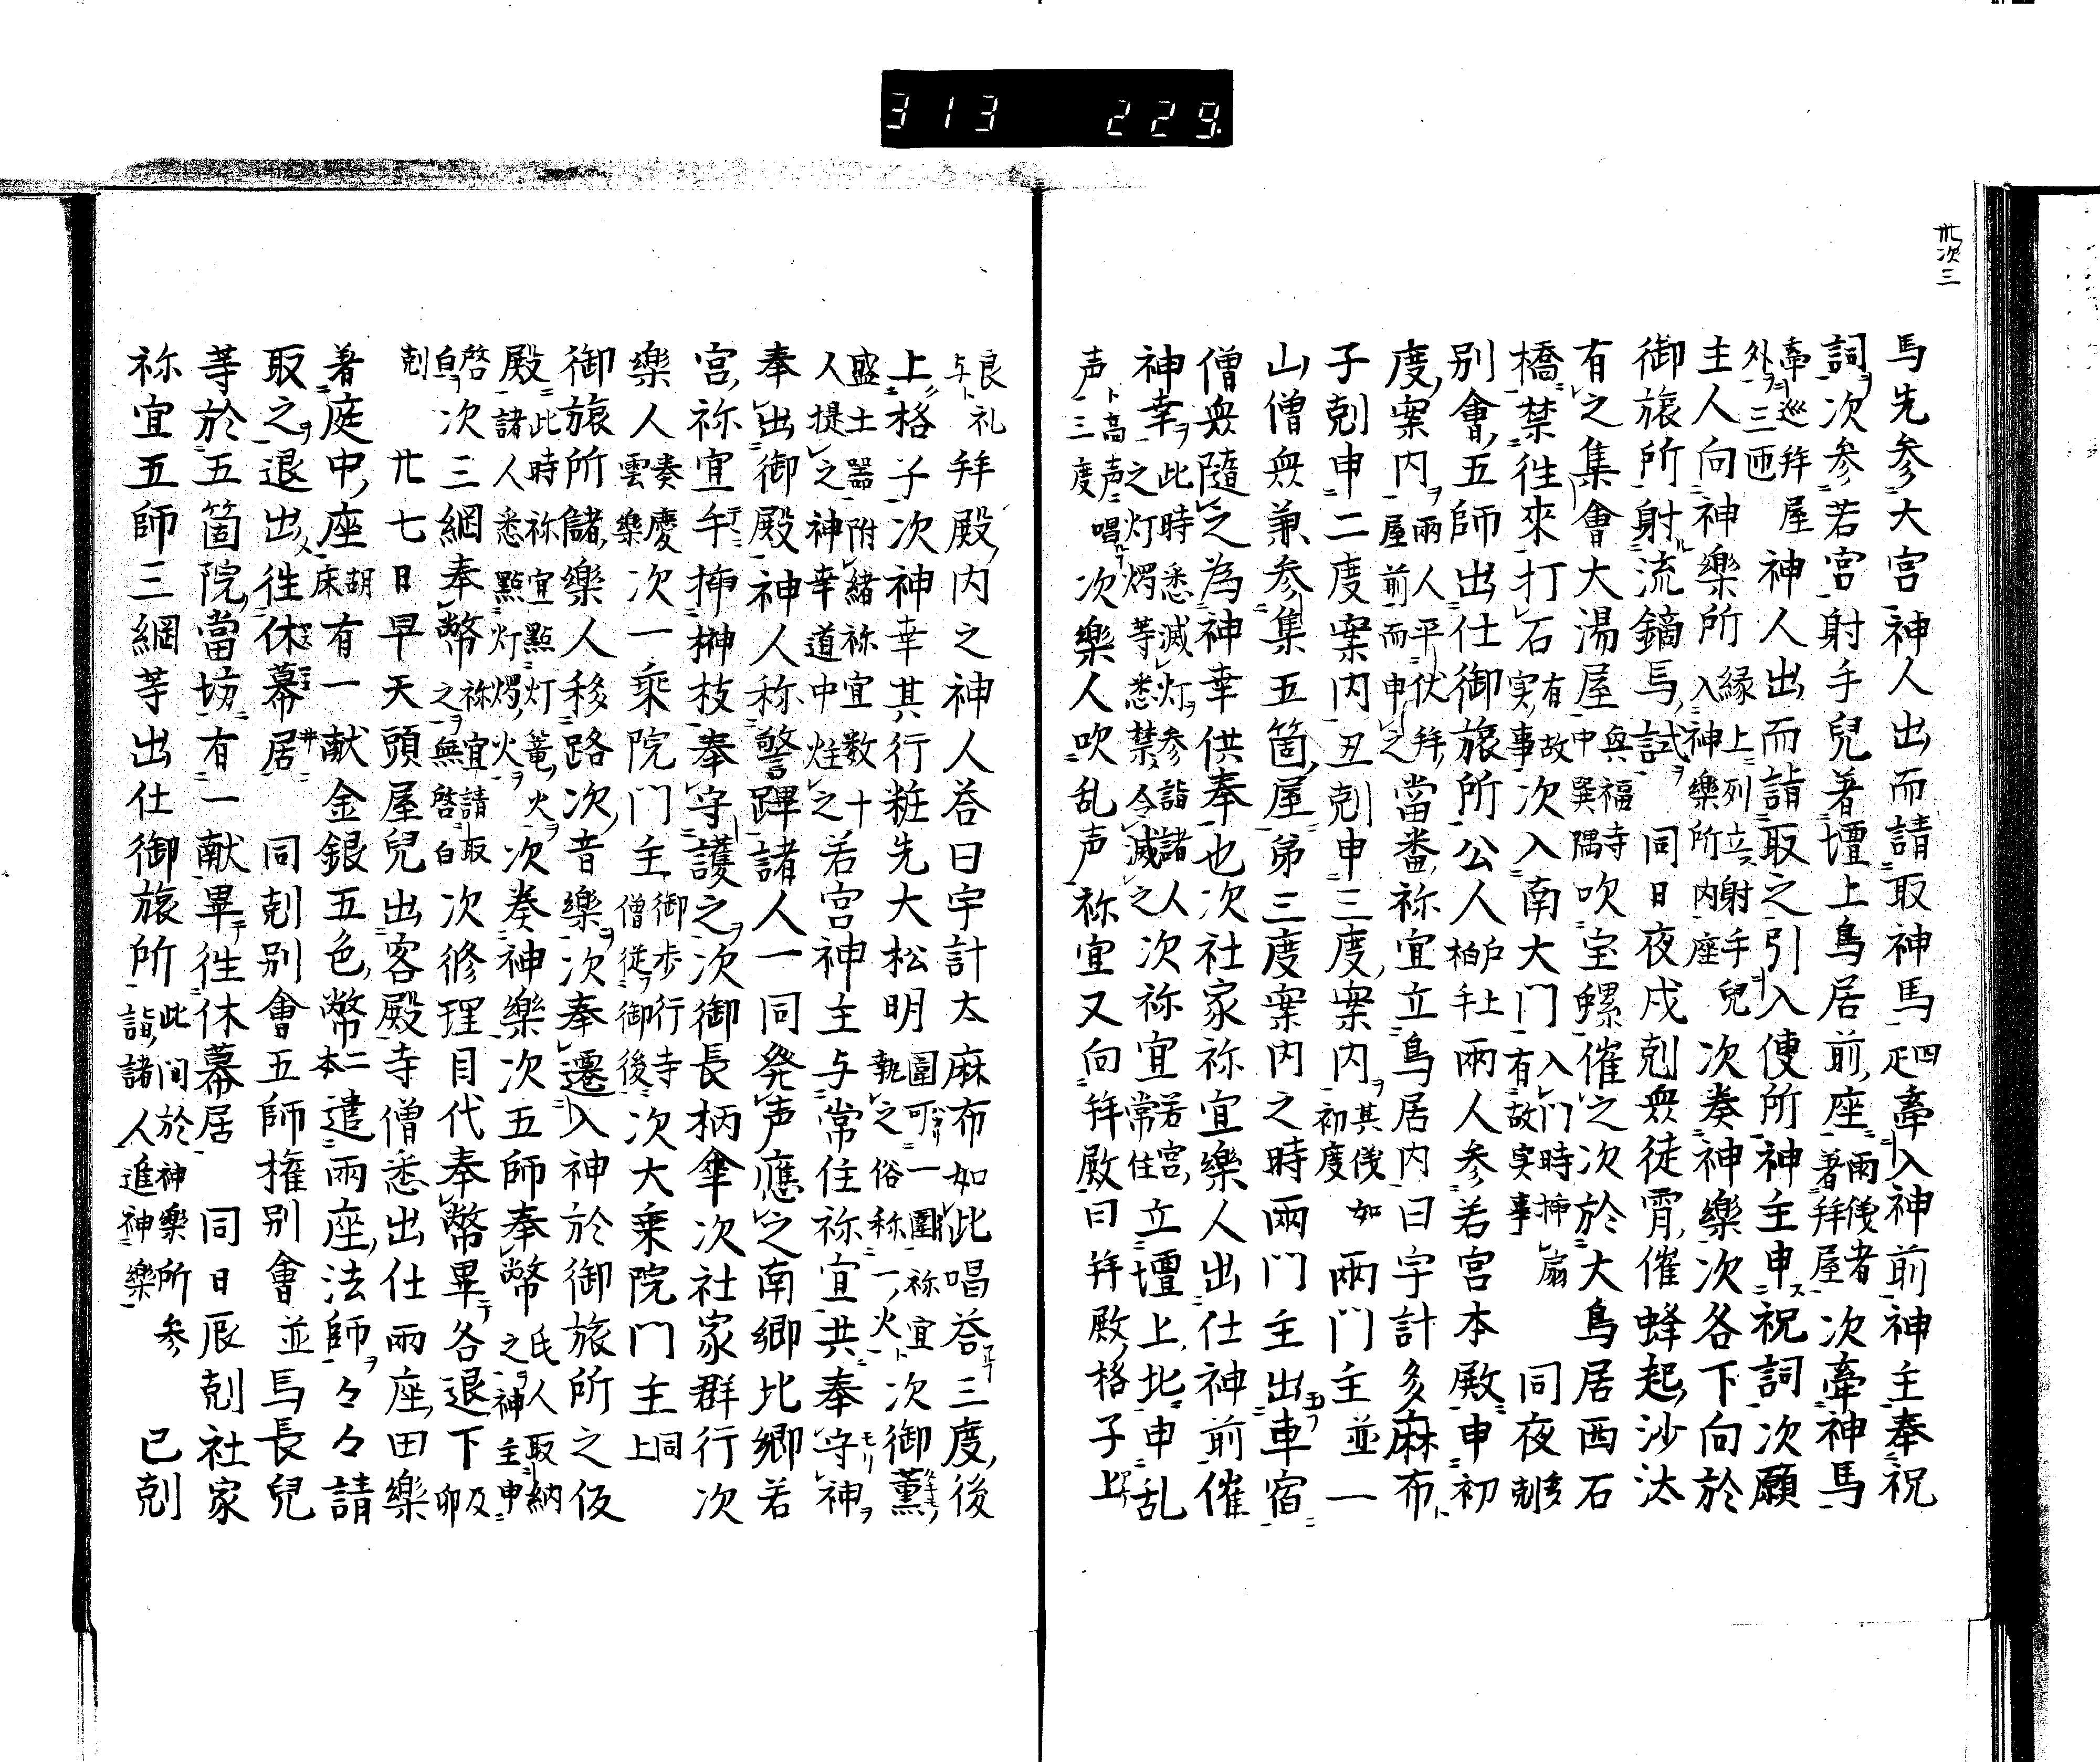 313 229.
卅次三
馬先参大宮神人出而請取神馬四疋牽入神前神主奉祝
詞次参若宮射手兒著壇上鳥居前座兩儀者著拜屋次牽神馬
牽巡拜屋外三匝神人出而請取之引入便所神主申祝詞次願
主人向神樂所縁上列立射手兒入神樂所内座次奏神樂次各下向於
御旅所射流鏑馬試同日夜戌剋衆徒霄催蜂起沙汰
有之集會大湯屋興福寺中巽隅吹宝螺催之次於大鳥居西石
橋禁徃來打石有故実事次入南大门入门時挿扇有故実事同夜剋
別會五師出仕御旅所公人戸上柏手兩人参若宮本殿申初
度案内兩人平伏拜屋前而申之當畨祢宜立鳥居内曰宇計多麻布
子剋申二度案内丑剋申三度案内其儀如初度兩门主並一
山僧衆兼参集五箇屋第三度案内之時兩门主出車宿
僧衆隨之為神幸供奉也次社家祢宜樂人出仕神前催
神幸此時悉滅灯参詣諸人之灯燭等悉禁令滅之次祢宜若宮常住立壇上北申乱
声高声唱三度次樂人吹乱声祢宜又向拜殿曰拜殿格子上
与良礼拜殿内之神人荅曰宇計太麻布如此唱荅三度後
上格子次神幸其行粧先大松明圍可一圍祢宜執之俗称一火次御薫
盛土器附緒祢宜数十人提之神幸道中炷之若宮神主与常住祢宜共奉守神
奉出御殿神人称警蹕諸人一同発声應之南郷北郷若
宮祢宜手挿榊枝奉守護之次御長柄傘次社家群行次
樂人奏慶雲樂次一乘院门主御步行寺僧徒御後次大乗院门主同上
御旅所儲樂人移路次音樂次奉遷入神於御旅所之仮
殿此時祢宜點灯篭火諸人悉點灯燭火次奏神樂次五師奉幣氏人取納之神主申
啓白次三綱奉幣祢宜請取之無啓白次修理目代奉幣畢各退下及卯
剋廿七日早天頭屋兒出客殿寺僧悉出仕兩座田樂
著庭中座胡床有一献金銀五色幣二本遣兩座法師々々請
取之退出徃休幕居同剋別會五師権別會並馬長兒
等於五箇院當坊有一献畢徃休幕居同日辰剋社家
祢宜五師三綱等出仕御旅所此间於神樂所参詣諸人進神樂巳剋